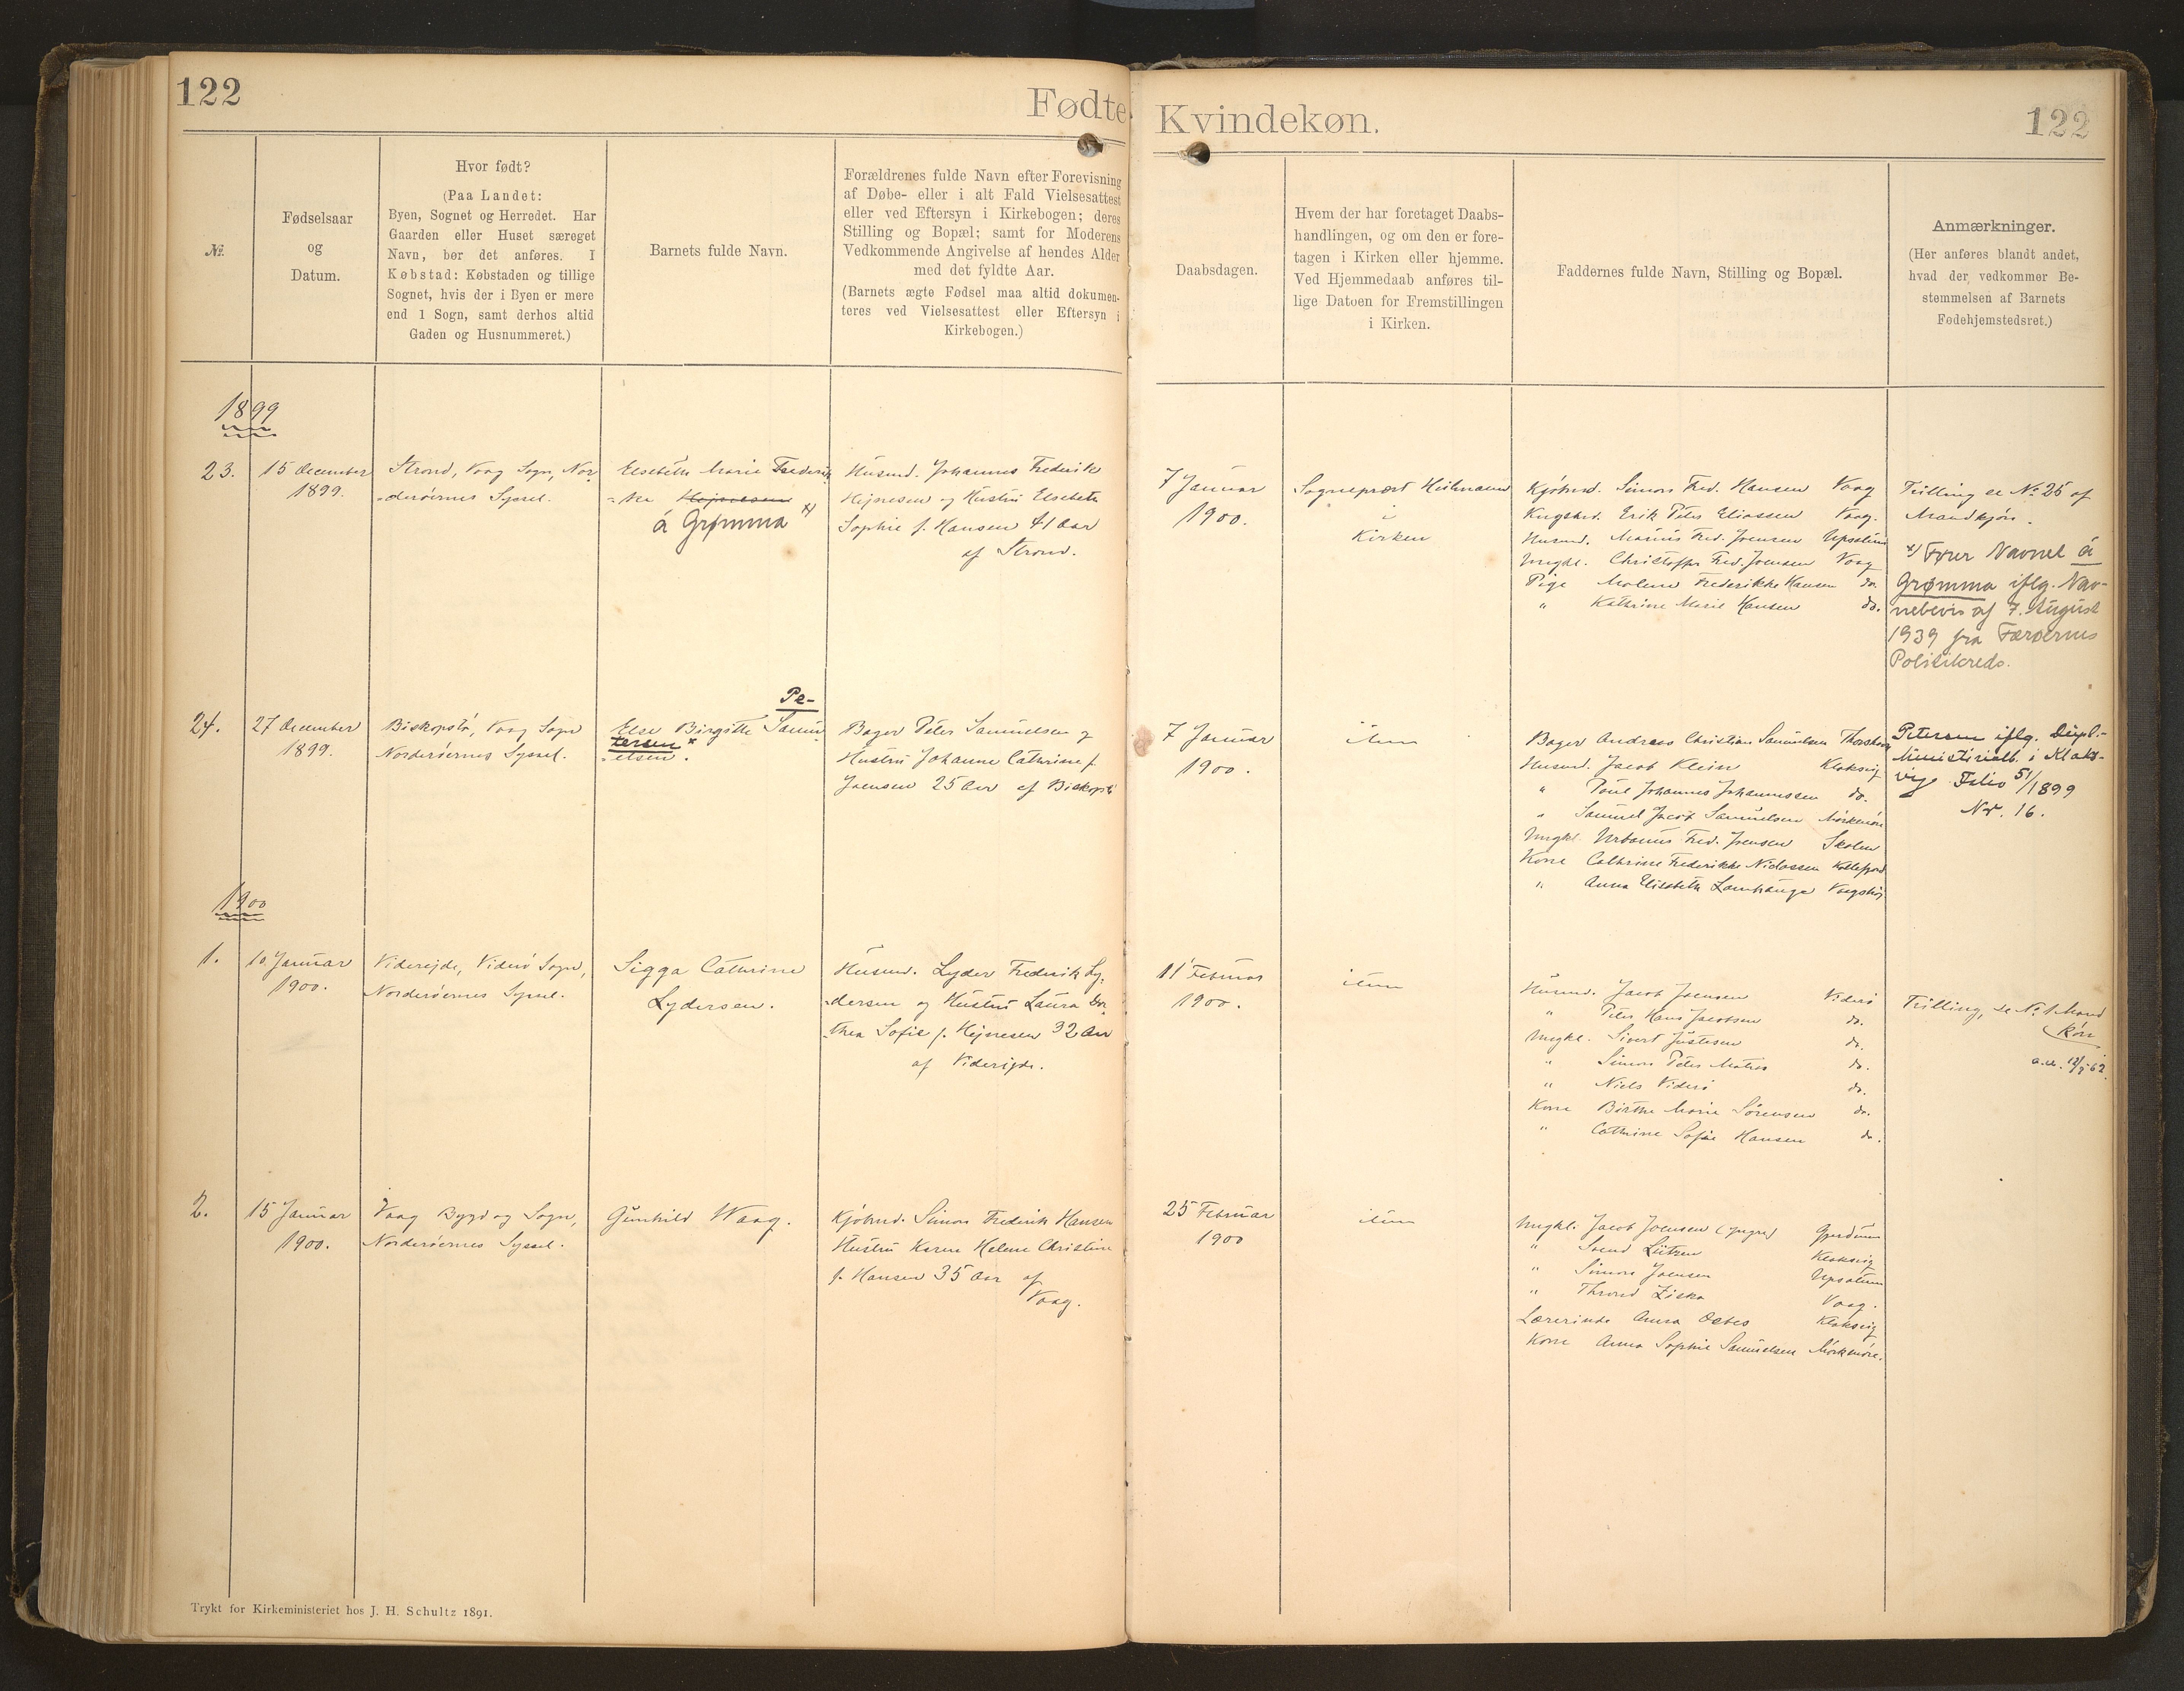 122
Fødte
Kvindekøn.
122
№
Fødselsaar
og
Datum.
Hvor født?
(Paa Landet:
Byen, Sognet og Herredet. Har
Gaarden eller Huset særeget
Navn, bør det anføres. I
Købstad: Købstaden og tillige
Sognet, hvis der i Byen er mere
end 1 Sogn, samt derhos altid
Gaden og Husnummeret.)
Barnets fulde Navn.
Forældrenes fulde Navn efter Forevisning
af Døbe- eller i alt Fald Vielsesattest
eller ved Eftersyn i Kirkebogen; deres
Stilling og Bopæl; samt for Moderens
Vedkommende Angivelse af hendes Alder
med det fyldte Aar.
(Barnets ægte Fødsel maa altid dokumen-
teres ved Vielsesattest eller Eftersyn i
Kirkebogen.)
Daabsdagen.
Hvem der har foretaget Daabs-
handlingen, og om den er fore-
tagen i Kirken eller hjemme.
Ved Hjemmedaab anføres til-
lige Datoen for Fremstillingen
i Kirken.
Faddernes fulde Navn, Stilling og Bopæl.
Anmærkninger.
(Her anføres blandt andet,
hvad der vedkommer Be-
stemmelsen af Barnets
Fødehjemstedsret.)
1899
23.
15 December
1899.
Strond, Vaag Sogn, Nor-
-derøernes Syssel.
Elsebeth Marie Frederik-
-ke Hejnesen
á Grømma x)
Husmd. Johannes Frederik
Hejnesen og Hustru Elsebeth
Sophie f. Hansen 41 Aar
af Strond.
7 Januar
1900.
Sognepræst Heilmann
i
Kirken
Kjøbmd. Simon Fred. Hansen Vaag
Kngsbd. Erik Peter Eliassen Vaag.
Husmd. Marius Fred. Joensen Upsalum
Ungkl. Christoffer Fred. Joensen Vaag
Pige Malene Frederikke Hansen do.
" Kathrine Marie Hansen do.
Tvilling se No. 25 af
Mandkjøn.
x) Fører Navnet á
Grømma iflg. Nav-
nebevis af 7. August
1939 fra Færøernes
Politikreds.
24.
27 December
1899.
Biskopstø, Vaag Sogn
Norderøernes Syssel.
Pe-
Else Birgitte Samu-
tersen x
-elsen.
Bager Peter Samuelsen og
Hustru Johanne Cathrine f.
Joensen 25 Aar af Biskopstø
7 Januar
1900.
item
Bager Andreas Christian Samuelsen Thorshavn
Husmd. Jacob Klein Klaksvig
" Poul Johannes Johannessen do.
" Samuel Jacob Samuelsen Mørkenøre
Ungkl. Urbanus Fred. Joensen Skalen
Kone Cathrine Frederikke Niclassen Kollefjord
" Anna Elisabeth Lamhauge Vaagsbøj
Petersen iflg. Dupl.-
Ministerialb. i Klaks-
vig Folio 51/1899
Nr. 16.
1900
1.
10 Januar
1900.
Viderejde, Viderø Sogn,
Norderøernes Syssel.
Sigga Cathrine
Lydersen.
Husmd. Lyder Frederik Ly-
-dersen og Hustru Laura Do-
-thea Sofie f. Hejnesen 32 Aar
af Viderejde.
11 Februar
1900.
item
Husmd. Jacob Joensen Viderø
" Peter Hans Jacobsen do.
Ungkl. Sivert Justesen do.
" Simon Peter Matras do.
" Niels Viderø do.
Kone Birthe Marie Sørensen do.
" Cathrine Sofie Hansen do.
Tvilling, se No. 1 Mand
køn
2.
15 Januar
1900.
Vaag Bygd og Sogn,
Norderøernes Syssel.
Gunhild Waag.
Kjøbmd. Simon Frederik Hansen
Hustru Karen Helene Christine
f. Hansen 35 Aar af
Vaag.
25 Februar
1900
item
Ungkl. Jacob Joensen (yngre) Gjerdum
" Svend Lützen Klaksvig
" Simon Joensen Upsalum
" Thrond Ziska Vaag.
Lærerinde Anna Klaksvig
Kone Anna Sophie Samuelsen Mørkenøre.
Trykt for Kirkeministeriet hos J. H. Schultz 1891.